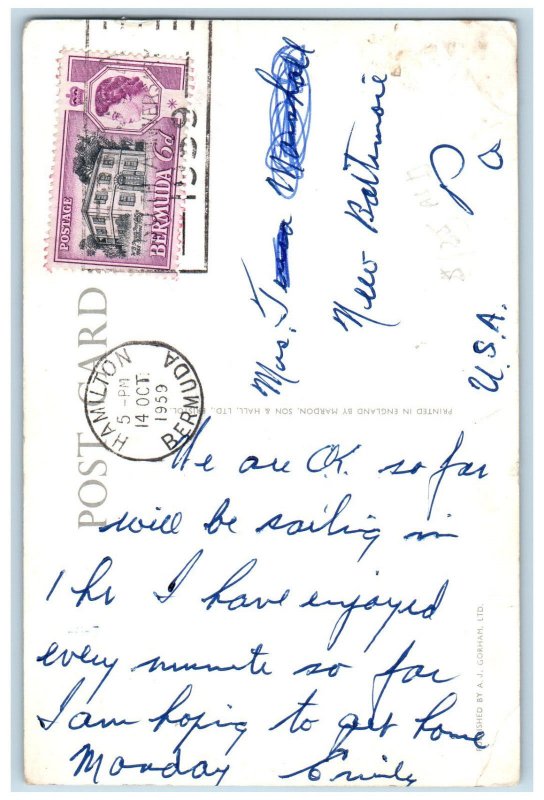 POSTAGE
BERMUDA 6d
HAMILTON
5 - PM
14 OCT
1959
BERMUDA
1959
POST CARD
Mrs.
New Baltimore
Pa
U.S.A.
PRINTED IN ENGLAND BY MARDON, SON & HALL, LTD., BRISTOL
We are O.K. so far
will be sailing in
1 hr I have enjoyed
every minute so far
I am hoping to get home
Monday Emily
PUBLISHED BY A. J. GORHAM, LTD.